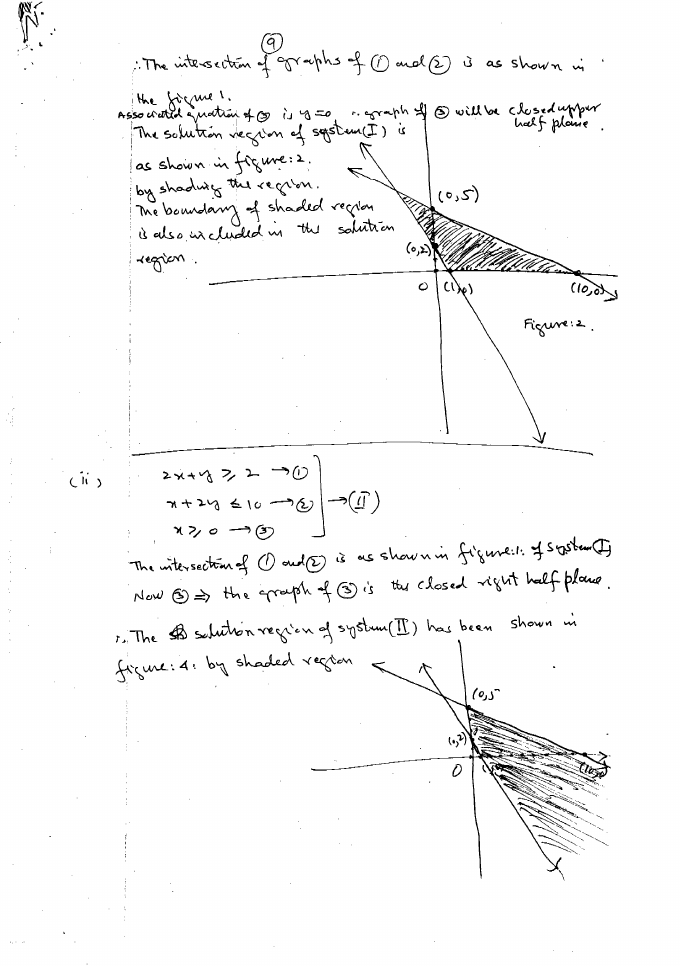 9
∴ The intersection of graphs of ① and ② is as shown in
the figure 1.
Associated equation of ③ is y=0 ∴ graph of ③ will be closed upper
half plane.
The solution region of system(I) is
as shown in figure:2.
by shading the region.
The boundary of shaded region
is also included in the solution
region.
(0,5)
(0,2)
0 (1,0) (10,0)
Figure:2.
(ii) 2x+y ≥ 2 → ①
x+2y ≤ 10 → ② → (II)
x ≥ 0 → ③
The intersection of ① and ② is as shown in figure:1: of system(I)
Now ③ ⇒ the graph of ③ is the closed right half plane.
∴ The solution region of system(II) has been shown in
figure:4: by shaded region
(0,5
(0,2)
0 (10,0